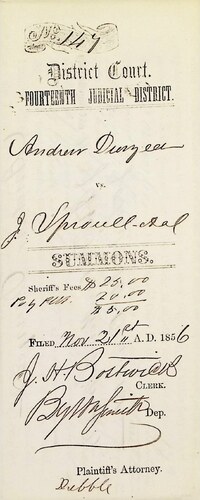 No. 147
District Court.
FOURTEENTH JUDICIAL DISTRICT.
Andrew Duryea
vs.
J. Sproull et al
SUMMONS.
Sheriff's Fees, $25,00
20,00
$5,00
FILED, Nov 21st A. D. 1856
J. H. Bostwick
CLERK.
By W Smith Dep.
Plaintiff's Attorney.
Dibble